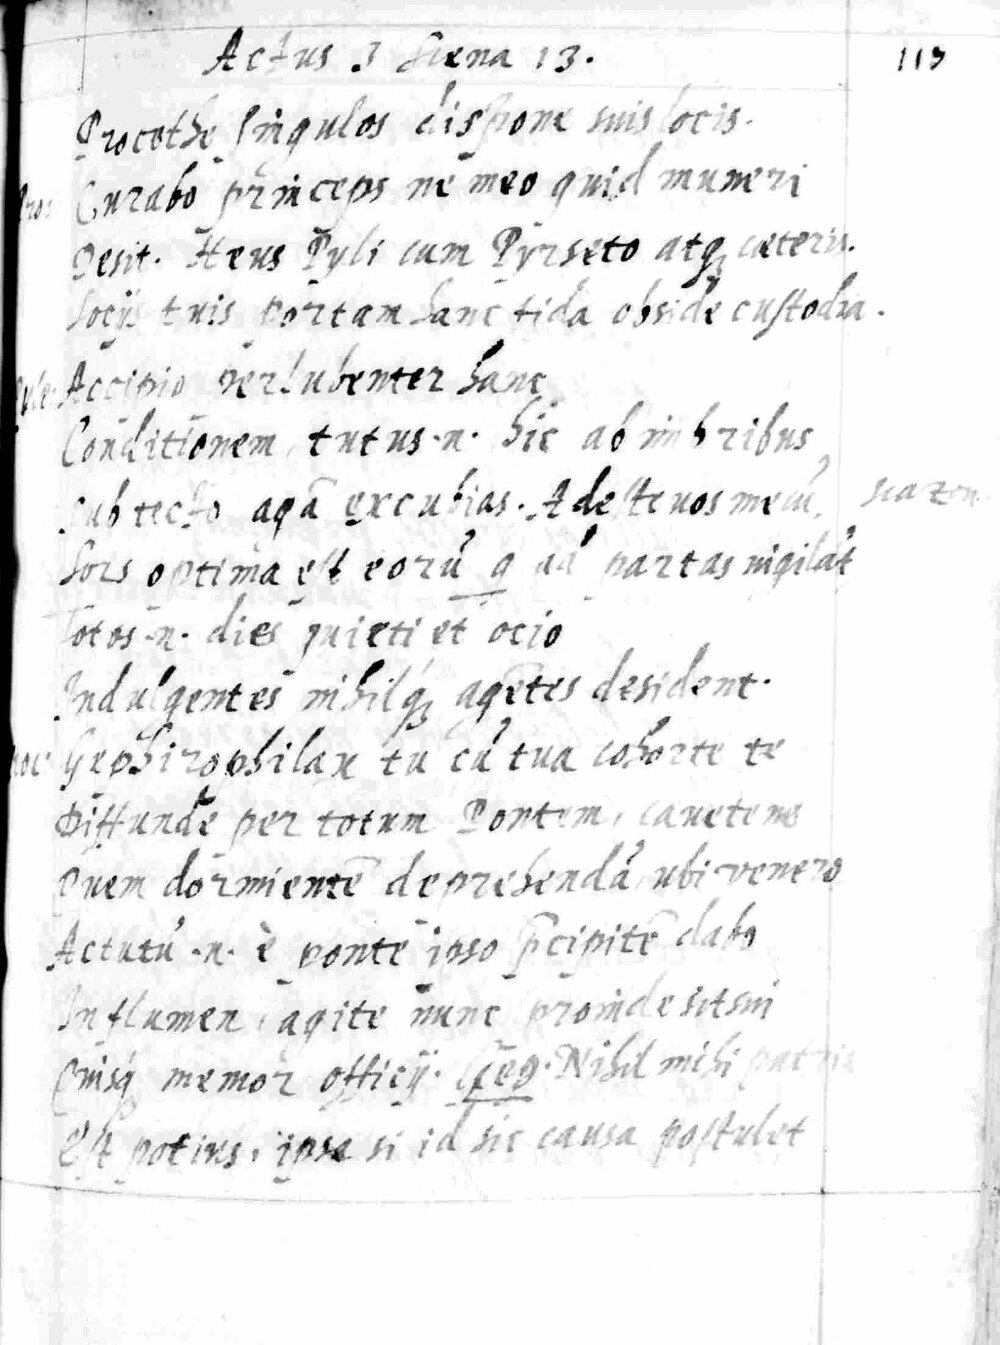 Actus 3 Scena 13. 113
Procethe singulos dispone suis locis.
Pros Curabo princeps ne meo quid muneri
Desit. Heus Pyli cum Pyrseto atq; cæteris.
Socijs tuis portam hanc fida obside custodia.
Pyle Accipio perlubenter hanc
Conditionem, tutus .n. hic ab imbribus
sub tecto agā excubias. Adeste vos mecū, scazon
Sors optima est eorū q ad partas vigilāt
Totos .n. dies quieti et ocio
Indulgentes nihilq; agētes desident.
Proc Gephirophilax tu cū tua cohorte te
Diffunde per totum Pontem, cavete ne
Quem dormientē deprehendā ubi venero
Actutū .n. è ponte ipso p̄cipitē dabo
In flumen, agite nunc proinde sit sui
Quisq́ memor officij. Nihil mihi patria
Est potius, ipsa si id sic causa postulet